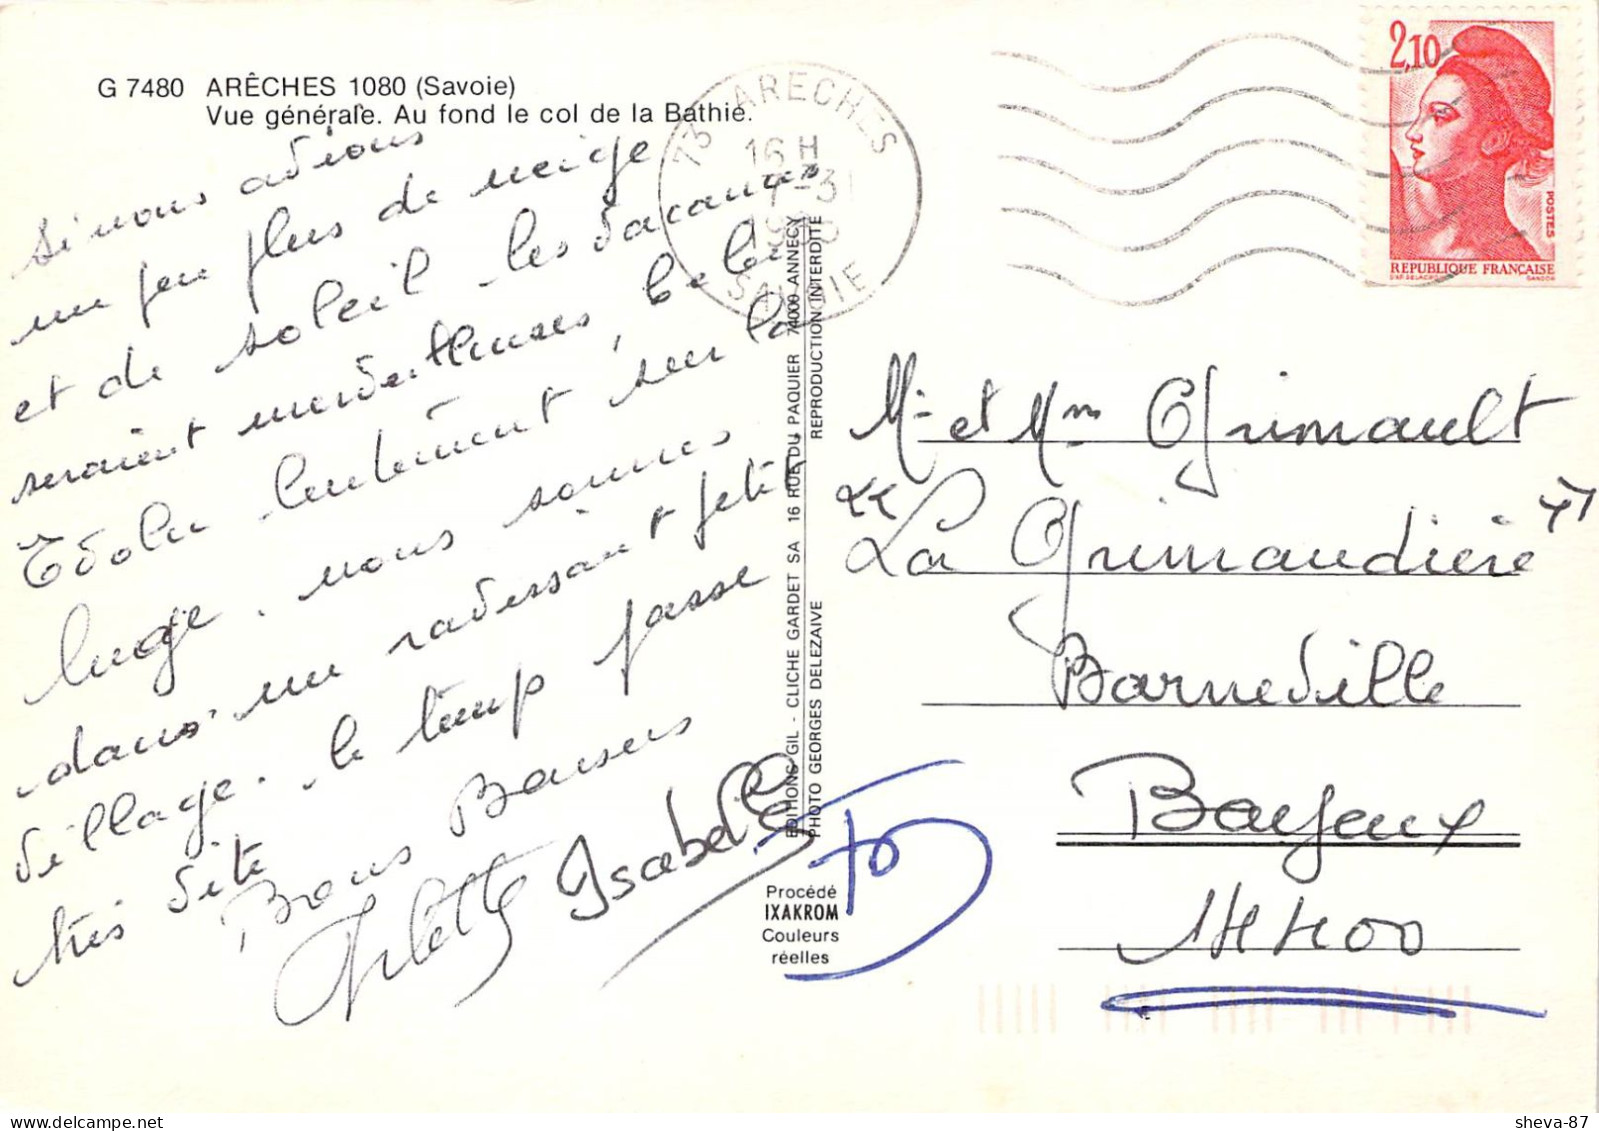 G 7480 ARÊCHES 1080 (Savoie)
Vue générale. Au fond le col de la Bathie.
si nous avions
un peu plus de neige
et de soleil les vacances
seraient merveilleuses,
lentement sur la
luge. nous sommes
dans un ravissant petit
village. le temps passe
très vite
Bons Baisers
Arlette Isabelle
73 ARECHES
16 H
7-3
19
SAVOIE
2,10
POSTES
RÉPUBLIQUE FRANÇAISE
GANDON
EDITIONS GIL - CLICHE GARDET SA 16 RUE DU PAQUIER 74000 ANNECY
PHOTO GEORGES DELEZAIVE REPRODUCTION INTERDITE
Procédé
IXAKROM
Couleurs
réelles
Mr et Mme Grimault
"La Grimaudière"
Barneville
Bayeux
14400
sheva-87